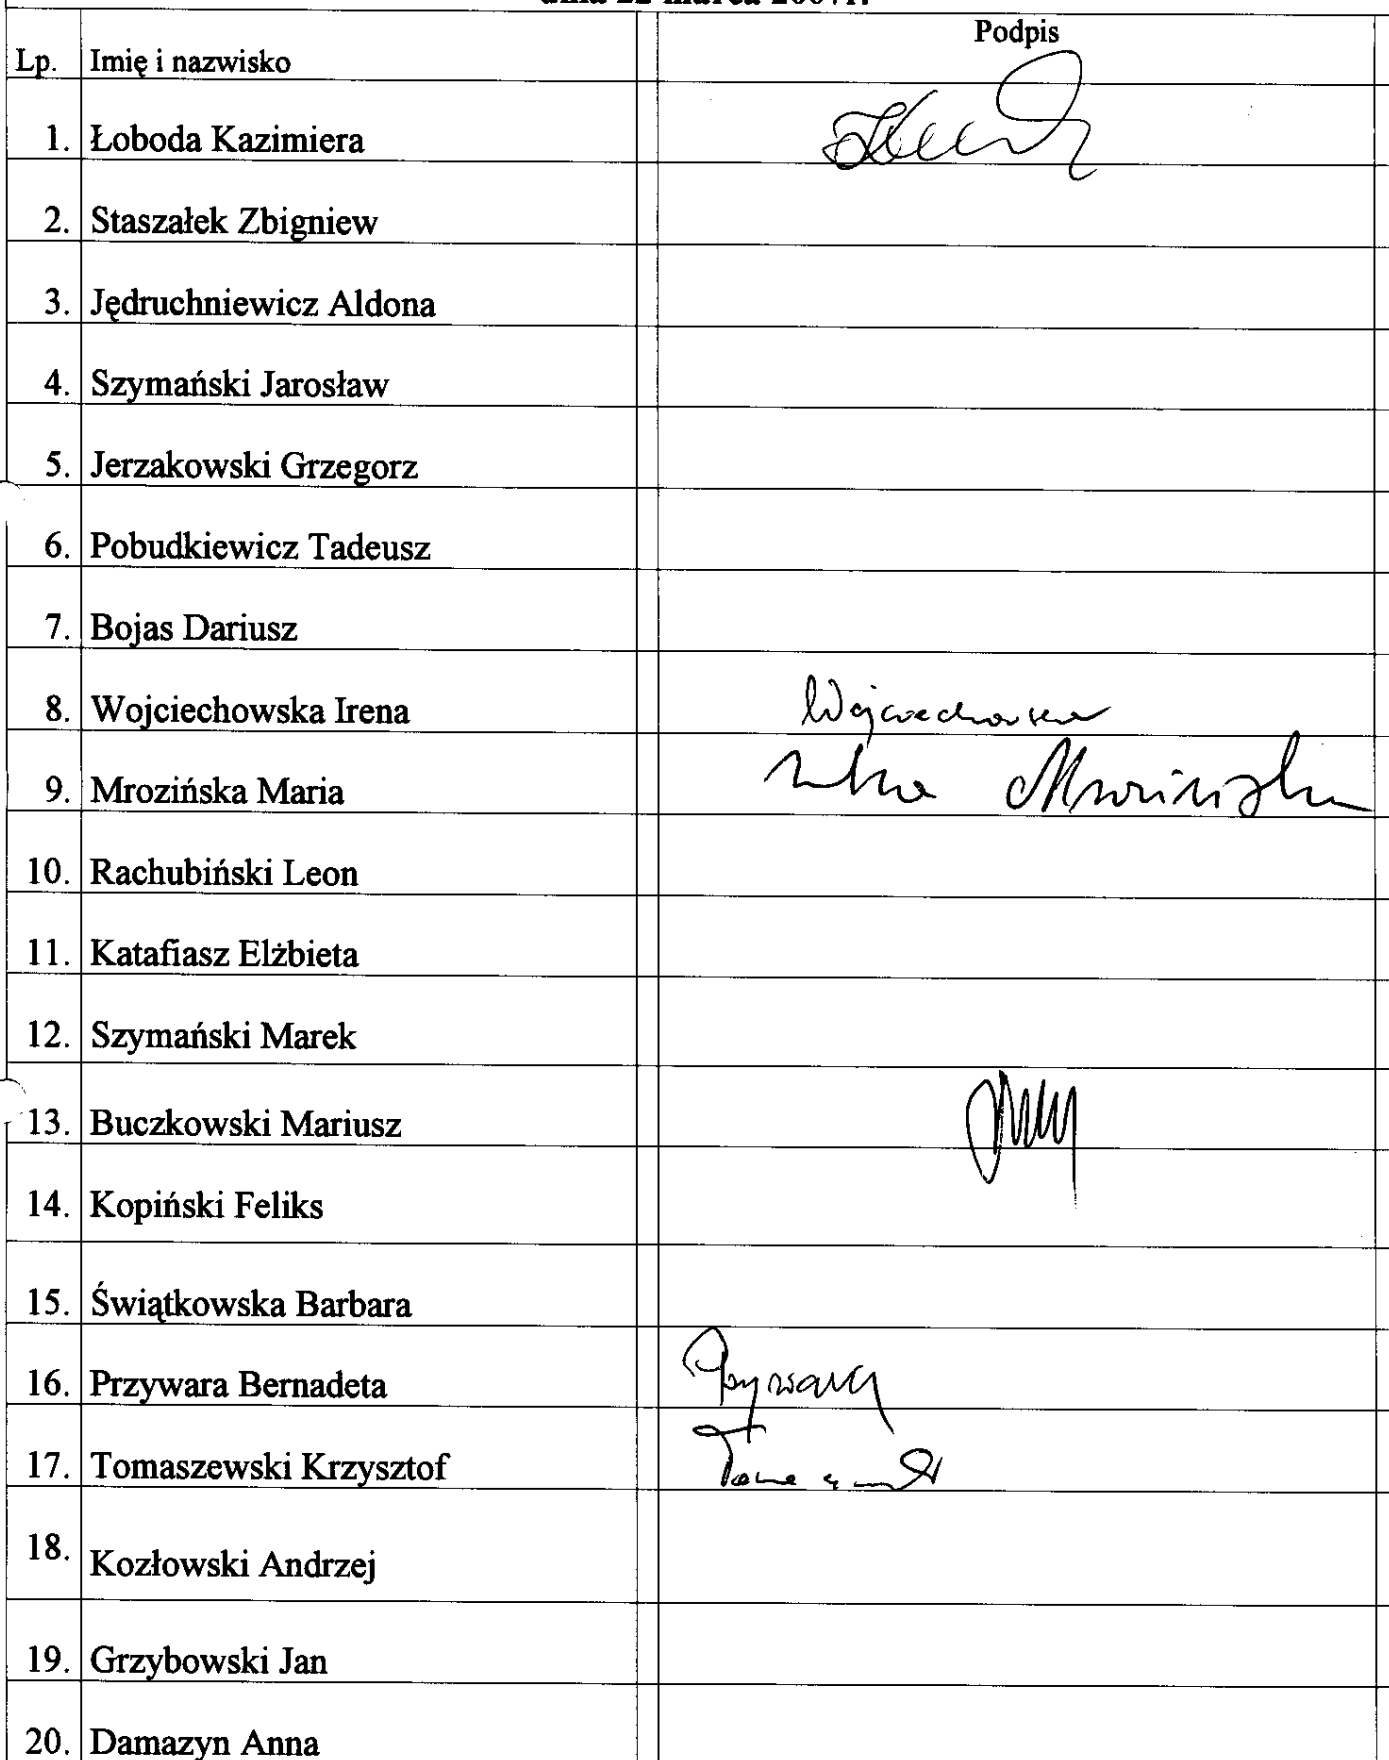 dnia 22 marca 2007r.
Lp. Imię i nazwisko Podpis
1. Łoboda Kazimiera
2. Staszałek Zbigniew
3. Jędruchniewicz Aldona
4. Szymański Jarosław
5. Jerzakowski Grzegorz
6. Pobudkiewicz Tadeusz
7. Bojas Dariusz
8. Wojciechowska Irena Wojciechowska
9. Mrozińska Maria Mrozińska
10. Rachubiński Leon
11. Katafiasz Elżbieta
12. Szymański Marek
13. Buczkowski Mariusz
14. Kopiński Feliks
15. Świątkowska Barbara
16. Przywara Bernadeta Przywara
17. Tomaszewski Krzysztof
18. Kozłowski Andrzej
19. Grzybowski Jan
20. Damazyn Anna